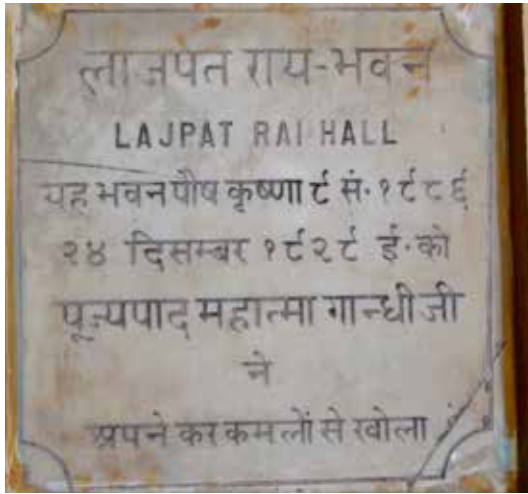 लाजपत राय-भवन
LAJPAT RAI HALL
यह भवन पौष कृष्णा ९ सं. १९८६
२४ दिसम्बर १९२९ ई. को
पूज्यपाद महात्मा गान्धी जी
ने
अपने कर कमलों से खोला